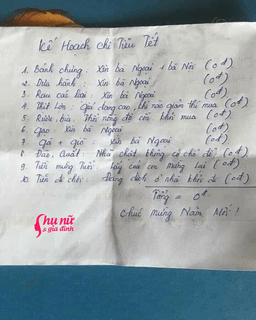 Kế Hoạch Chi Tiêu Tết
1. Bánh chưng: Xin bà Ngoại + bà Nội (0đ)
2. Dưa hành: Xin bà Ngoại (0đ)
3. Rau các loại: Xin bà Ngoại (0đ)
4. Thịt Lợn: Giá đang cao, khi nào giảm thì mua (0đ)
5. Rượu, bia: Thổi nồng độ cồn khỏi mua (0đ)
6. Gạo: Xin bà Ngoại (0đ)
7. Gà + giò: Xin bà Ngoại (0đ)
8. Đào, Quất: Nhà chật không có chỗ để (0đ)
9. Tiền mừng Tuổi: Lấy của con mừng lại (0đ)
10. Tiền đi chơi: Đang dịch ở nhà khỏi đi (0đ)
Tổng = 0đ
Chúc Mừng Năm Mới!
Phụ nữ
& gia đình